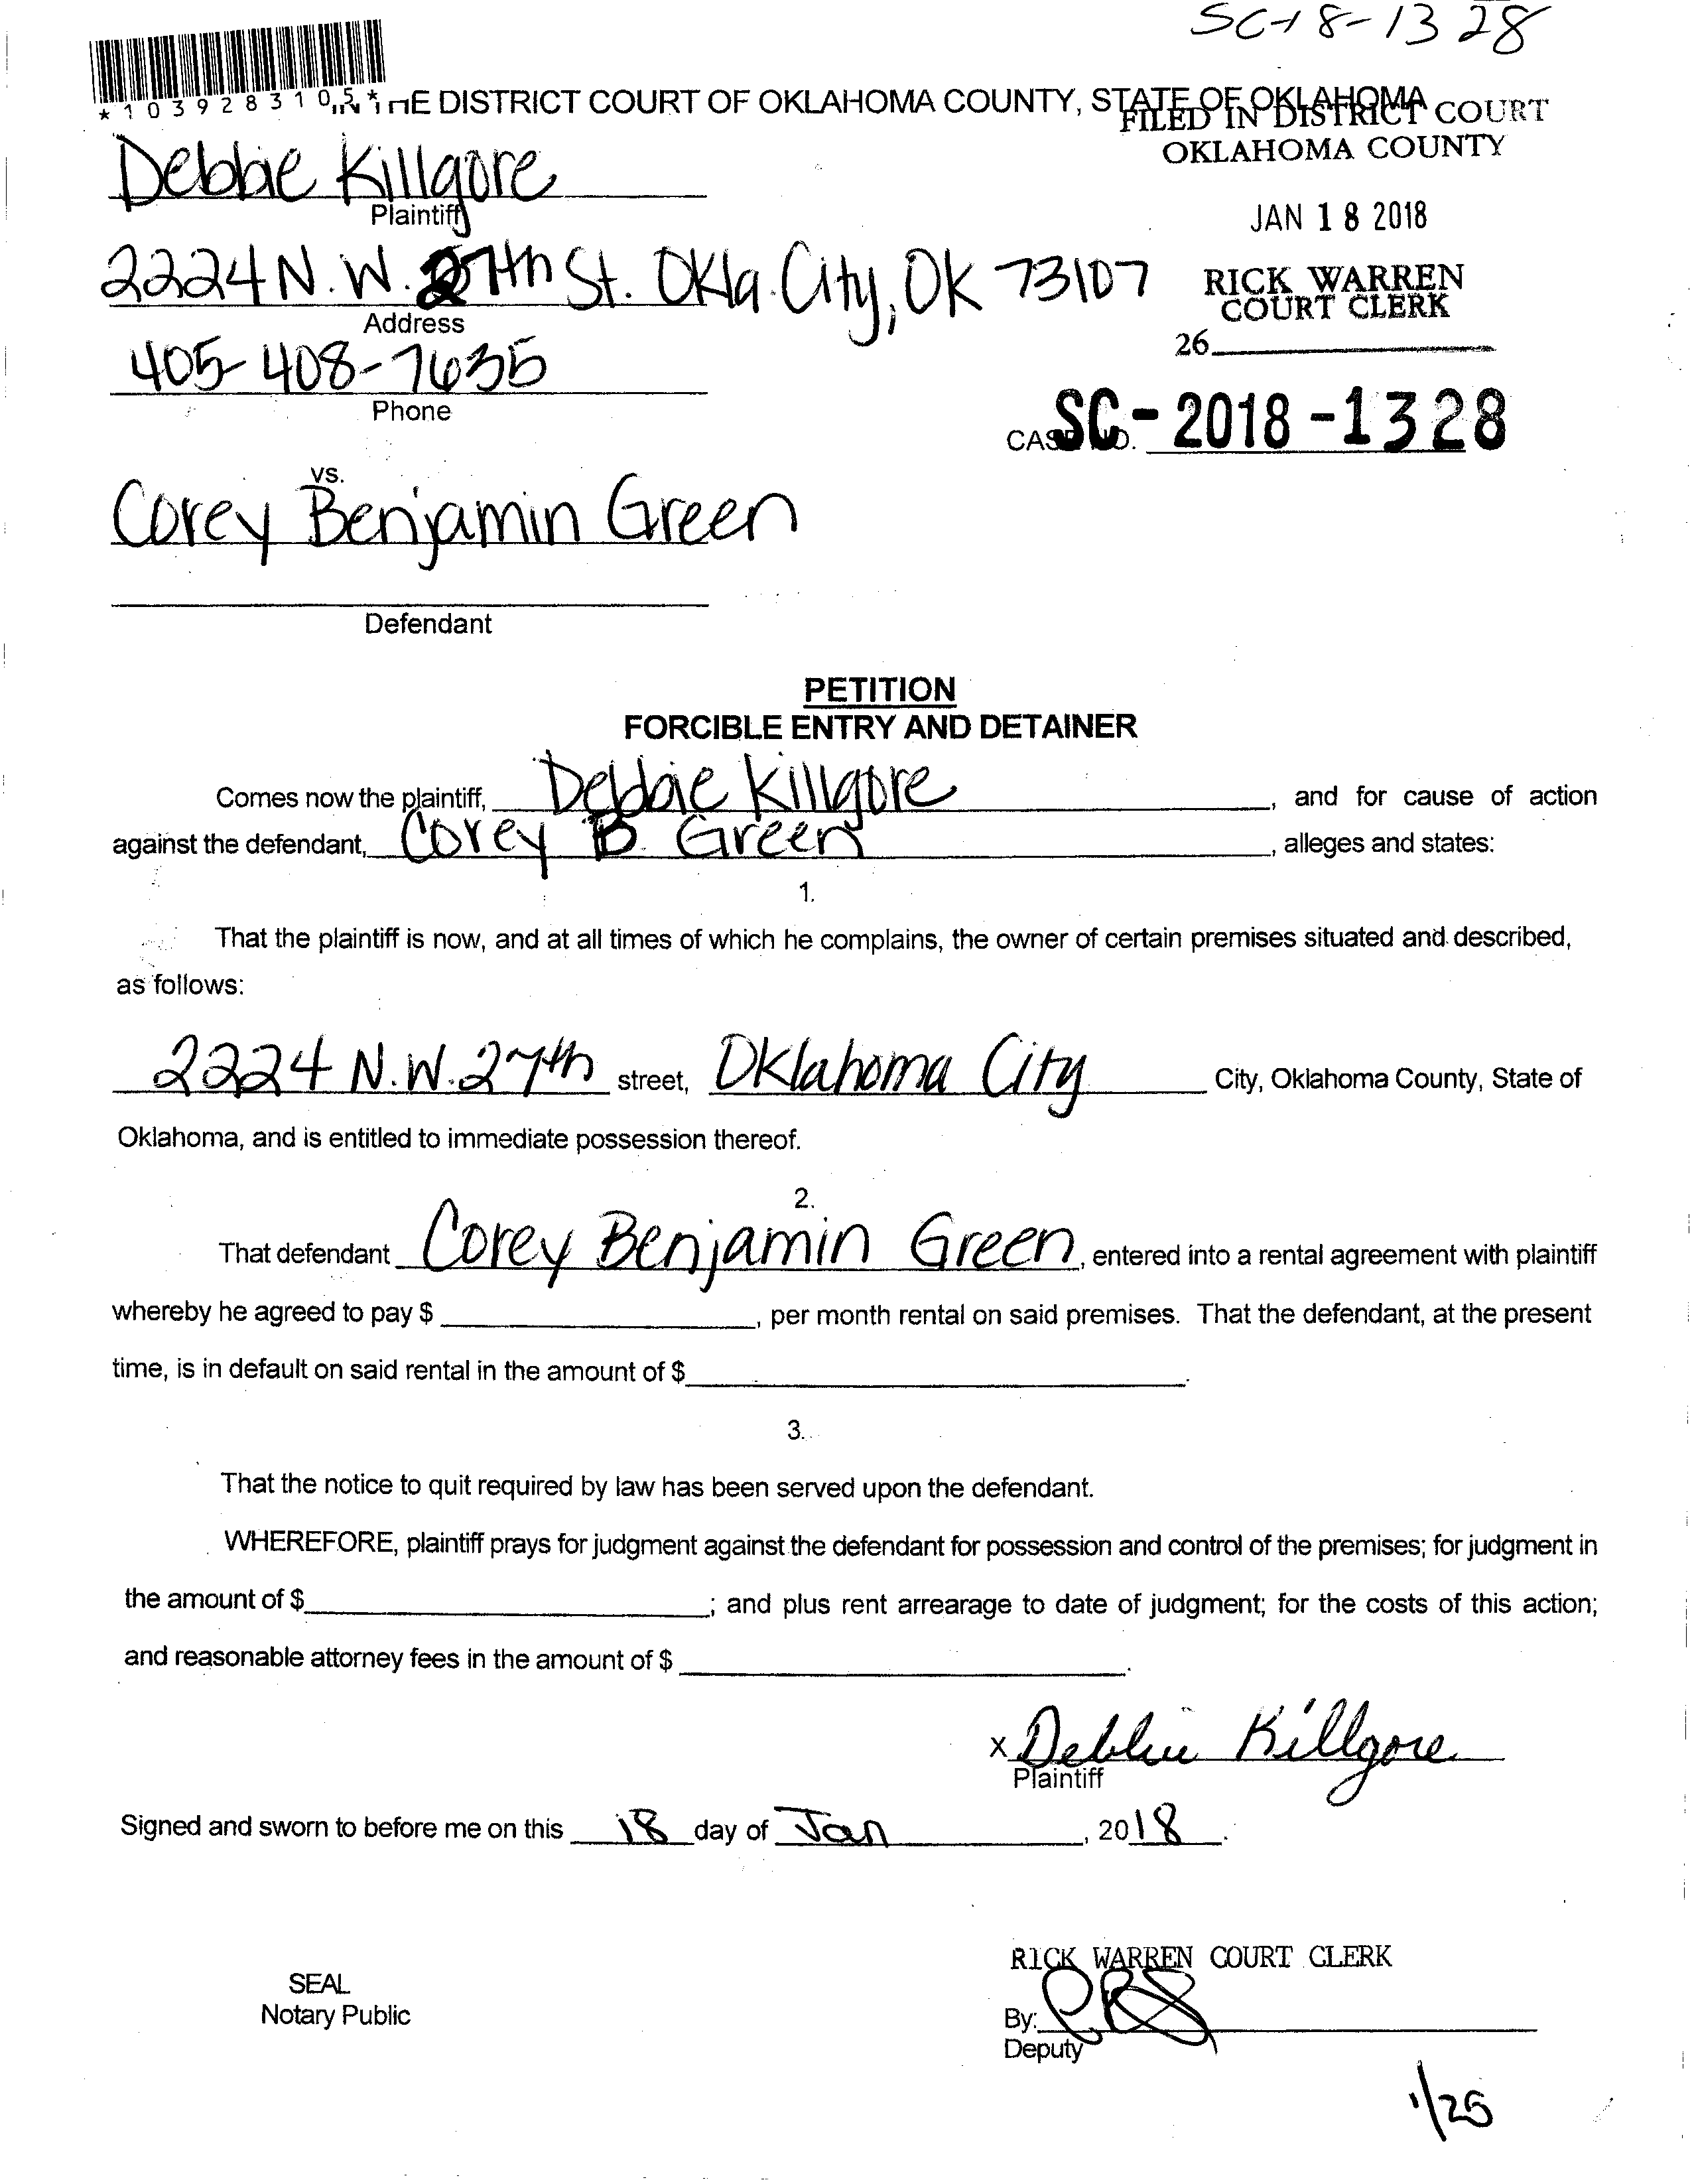 SC-18-1328
*1039283105*
IN THE DISTRICT COURT OF OKLAHOMA COUNTY, STATE OF OKLAHOMA
FILED IN DISTRICT COURT
OKLAHOMA COUNTY
Debbie Killgore
Plaintiff
JAN 18 2018
2224 N.W. 27th St. Okla. City, OK 73107
RICK WARREN
COURT CLERK
Address
26
405-408-7635
Phone
CASE NO. SC-2018-1328
vs.
Corey Benjamin Green
Defendant
PETITION
FORCIBLE ENTRY AND DETAINER
Comes now the plaintiff, Debbie Killgore, and for cause of action
against the defendant, Corey B. Green, alleges and states:
1.
That the plaintiff is now, and at all times of which he complains, the owner of certain premises situated and described,
as follows:
2224 N.W. 27th street, Oklahoma City City, Oklahoma County, State of
Oklahoma, and is entitled to immediate possession thereof.
2.
That defendant Corey Benjamin Green, entered into a rental agreement with plaintiff
whereby he agreed to pay $ , per month rental on said premises. That the defendant, at the present
time, is in default on said rental in the amount of $ .
3.
That the notice to quit required by law has been served upon the defendant.
WHEREFORE, plaintiff prays for judgment against the defendant for possession and control of the premises; for judgment in
the amount of $ ; and plus rent arrearage to date of judgment; for the costs of this action;
and reasonable attorney fees in the amount of $ .
x Debbie Killgore
Plaintiff
Signed and sworn to before me on this 18 day of Jan, 2018.
RICK WARREN COURT CLERK
SEAL
Notary Public
By:
Deputy
1/25